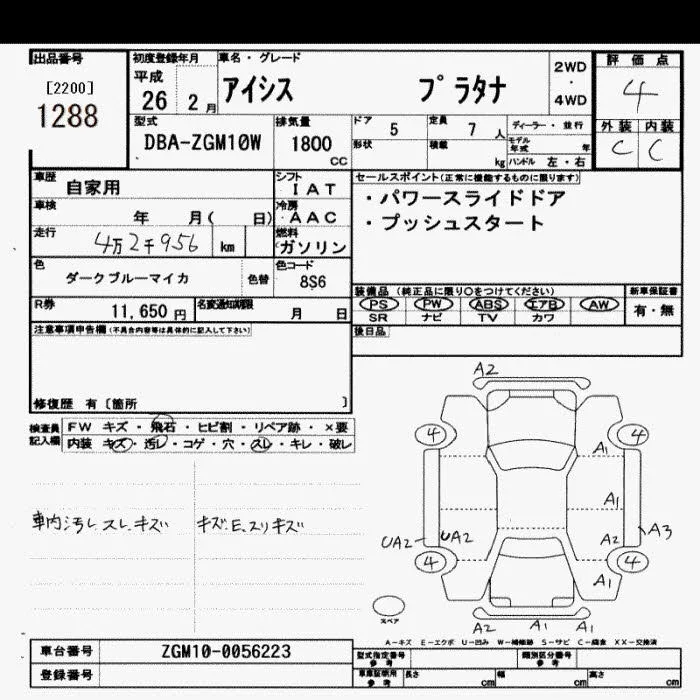 出品番号 初度登録年月 車名・グレード 2WD・4WD 評価点
[2200] 平成
1288 26 2月 アイシス プラタナ 4
型式 排気量 ドア 5 定員 7人 ディーラー・並行 外装 内装
DBA-ZGM10W 1800 CC 形状 積載 kg モデル年式 年 C C
ハンドル 左・右
車歴 自家用 シフト IAT セールスポイント(正常に機能するものに限ります)
車検 年 月( 日) 冷房 AAC ・パワースライドドア
走行 4万2千956 km 燃料 ガソリン ・プッシュスタート
色 ダークブルーマイカ 色替 色コード 8S6
装備品 (純正品に限り○をつけてください) 新車保証書
R券 11,650円 名変通知期限 月 日 PS PW ABS エアB AW 有・無
SR ナビ TV カワ
注意事項申告欄(不具合内容等は具体的に記入して下さい) 後日品
修復歴 有〔箇所 〕
検査員記入欄 FW キズ・飛石・ヒビ割・リペア跡・×要
内装 キズ・汚レ・コゲ・穴・スレ・キレ・破レ
車内汚レ.スレ.キズ キズE.スリキズ
A2
4 4
A1
A1
UA2 UA2 A2 A3
4 4
A1
スペア
A2 A1 A1
A-キズ E-エクボ U-凹み W-補修跡 S-サビ C-腐食 XX-交換済
車台番号 ZGM10-0056223 型式指定番号 参考 類別区分番号 参考
登録番号 車庫証明用 参考 長さ cm 幅 cm 高さ cm